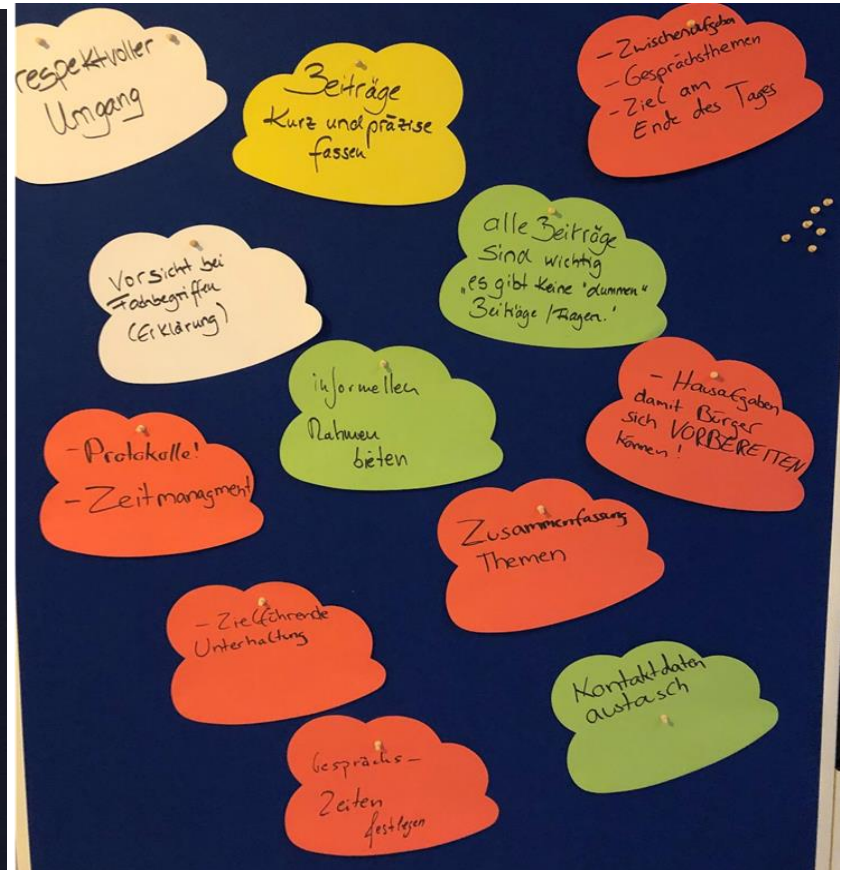 respektvoller
Umgang
Beiträge
Kurz und präzise
fassen
- Zwischenaufgaben
- Gesprächsthemen
- Ziel am
Ende des Tages
alle Beiträge
sind wichtig
„es gibt keine "dummen"
Beiträge / Fragen."
Vorsicht bei
Fachbegriffen
(Erklärung)
informellen
Rahmen
bieten
- Hausafgaben
damit Bürger
sich VORBEREITEN
können!
- Protokolle!
- Zeitmanagment
Zusammenfassung
Themen
- Zielführende
Unterhaltung
Kontaktdaten
austasch
Gesprächs-
Zeiten
festlegen